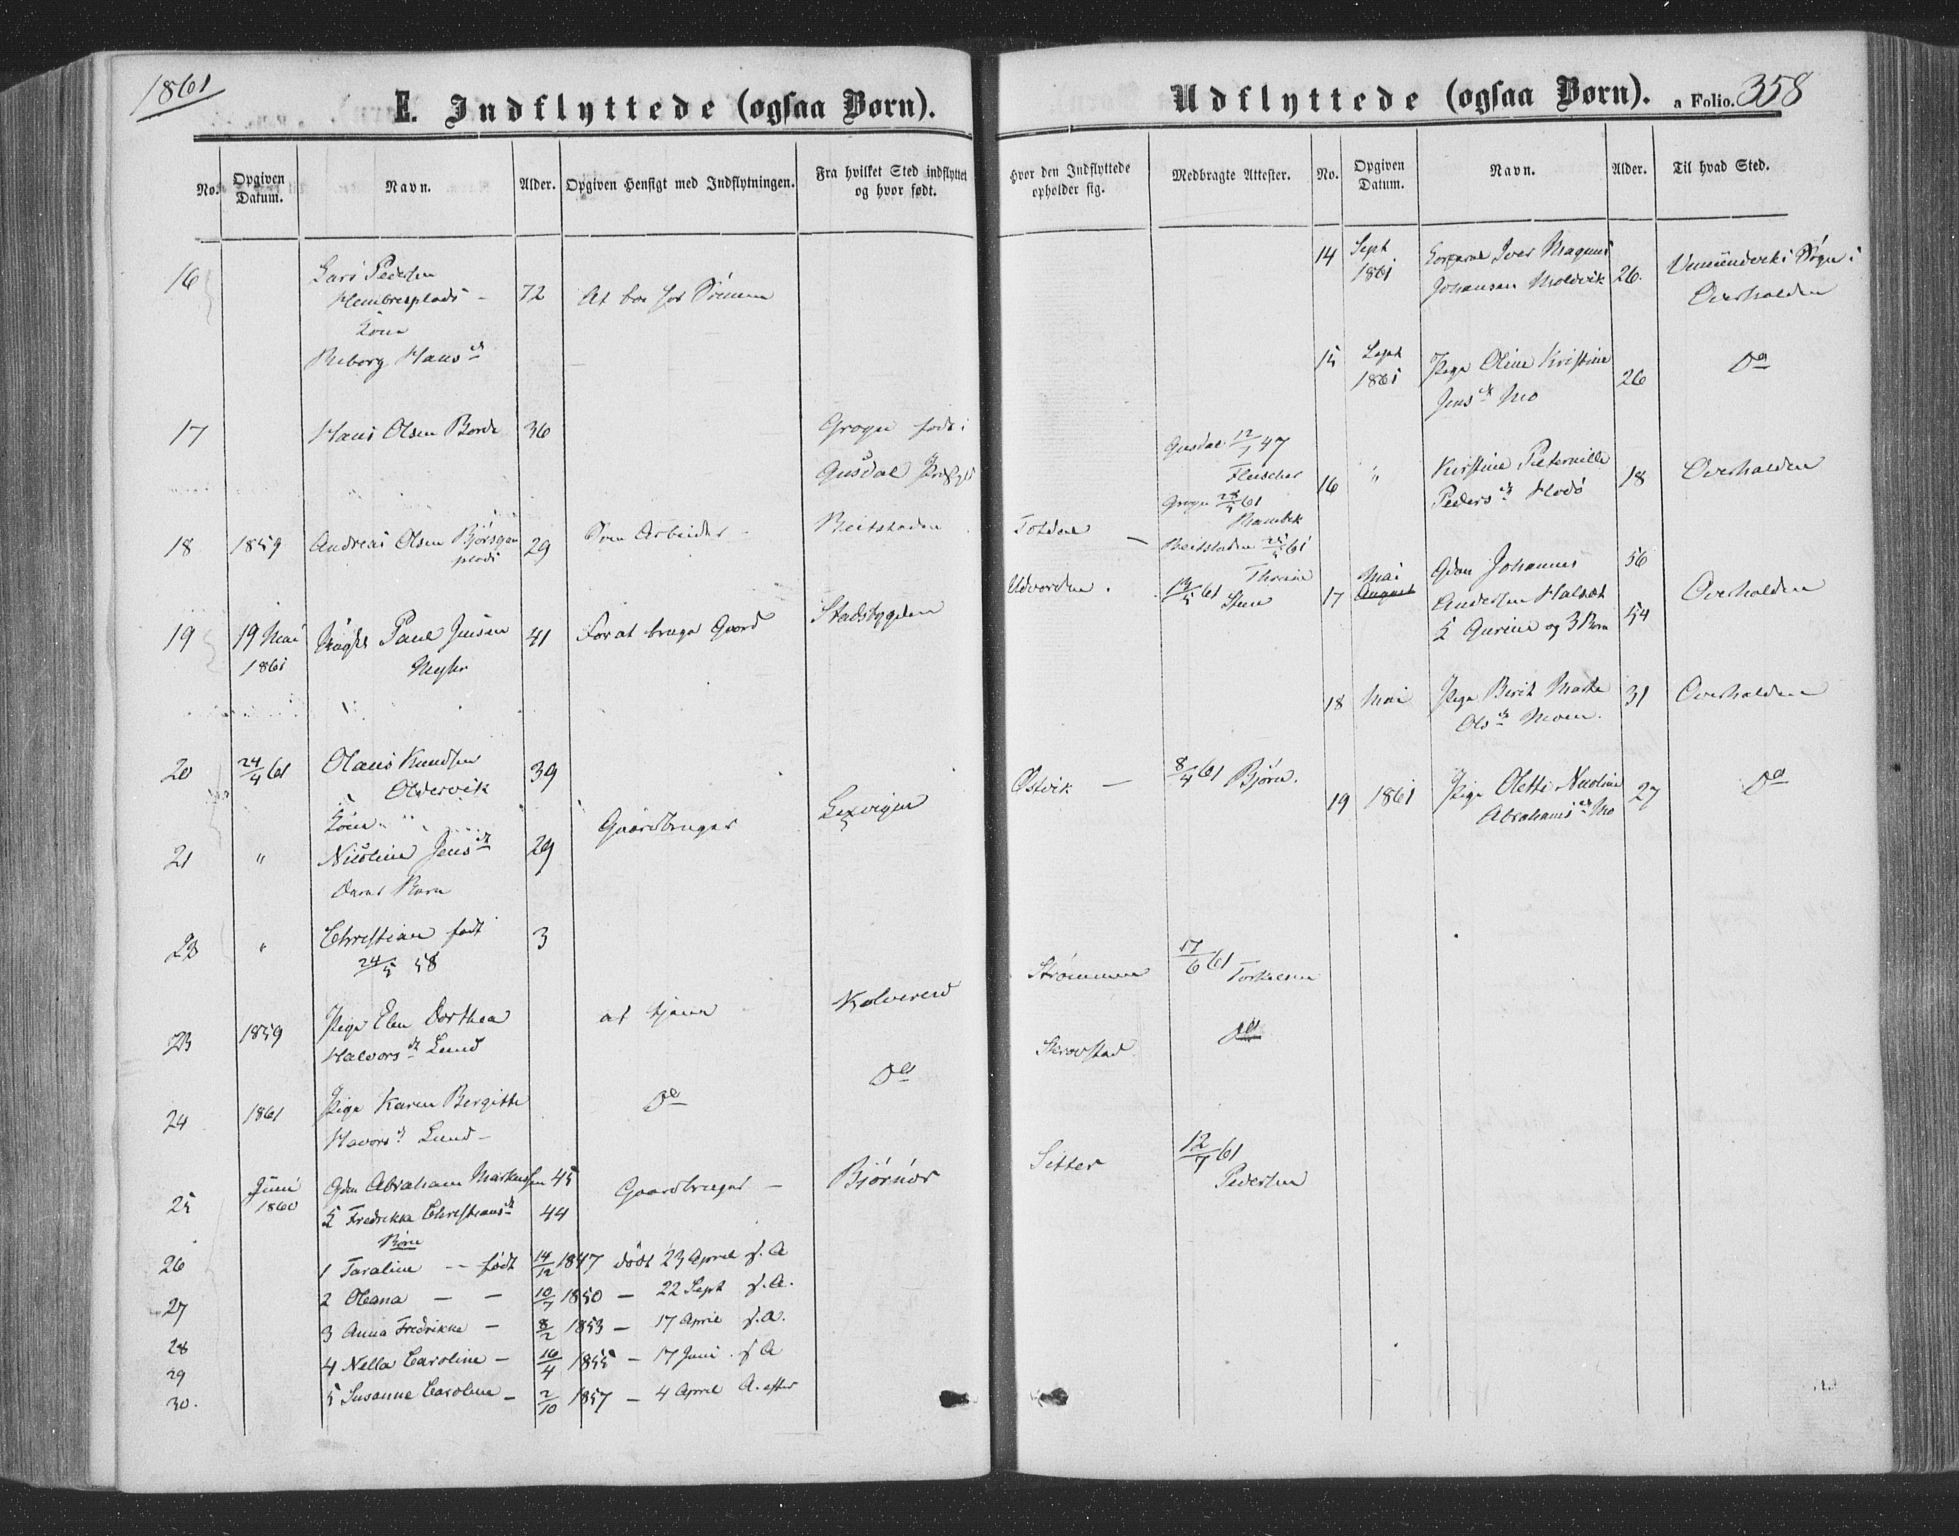 1861
E. Indflyttede (ogsaa Børn).
No. Opgiven Datum. Navn. Alder. Opgiven Hensigt med Indflytningen. Fra hvilket Sted indflyttet og hvor født.
16 Lars Pedersen 72 At boe hos
Hembresplads
Kone
Hans dt
17 Hans Olsen 36 Grogn født i
18 1859 Andreas Olsen 29 Arbeider Beitstaden
plads
19 19 Mai 1861 Paul Jensen 41 For at bruge Gaard Stadsbygden
Myhr
20 24/4 61 Olaus Knudsen 39
Oldervik
Kone
21 " Nicoline Jens dt 29 Gaardbruger Lexvigen
Deres Barn
23 " Christian født 3
24/5 58
23 1859 Pige Elen Dorthea at tjene Kolvereid
Halvors dt Lund
24 1861 Pige Karen Bergitte Do Do
Havors dt Lund
25 Juni 1860 Gdm Abraham Markussen 45 Gaardbruger Bjørnør
K Fredrikke Christians dt 44
Børn
26 1 Taraline født 14/12 1847 døbt 23 April s. A
27 2 Oleana 10/7 1850 22 Sept s. A.
28 3 Anna Fredrikke 8/2 1853 17 April s. A.
29 4 Nella Caroline 16/4 1855 17 Juni s A
30. 5 Susanne Caroline 2/10 1857 4 April A. efter
Udflyttede (ogsaa Børn). a Folio. 358
Hvor den Indflyttede opholder sig. Medbragte Attester. No. Opgiven Datum. Navn. Alder. Til hvad Sted.
14 Sept 1861 Iver Magnus 26. Vemundviks Sogn i
Johansen Moldvik Overhalden
15 Sept 1861 Pige Oline Kristine 26 Do
Jens dt Mo
12/1 47
Fleischer
16 " Kirstine Peternille 18 Overhalden
Peders dt Hodø
Grogn 61
Beitstaden 61
17 Mai August Gdm Johannes 56 Overhalden
Andersen Halset
K Gurine og 3 Børn 54
Udvorden. 13/5 61 Steen
18 Mai Pige Berit Marta 31 Overhalden
Ols dt Moen.
Østvik 8/4 61 Bjørn.
19 1861 Pige Olette Nicoline 27 Do
Abrahams dt Mo
Strømmen 17/6 61 Torkelsen
Skrovstad. Do
Setter 12/7 61
Pedersen